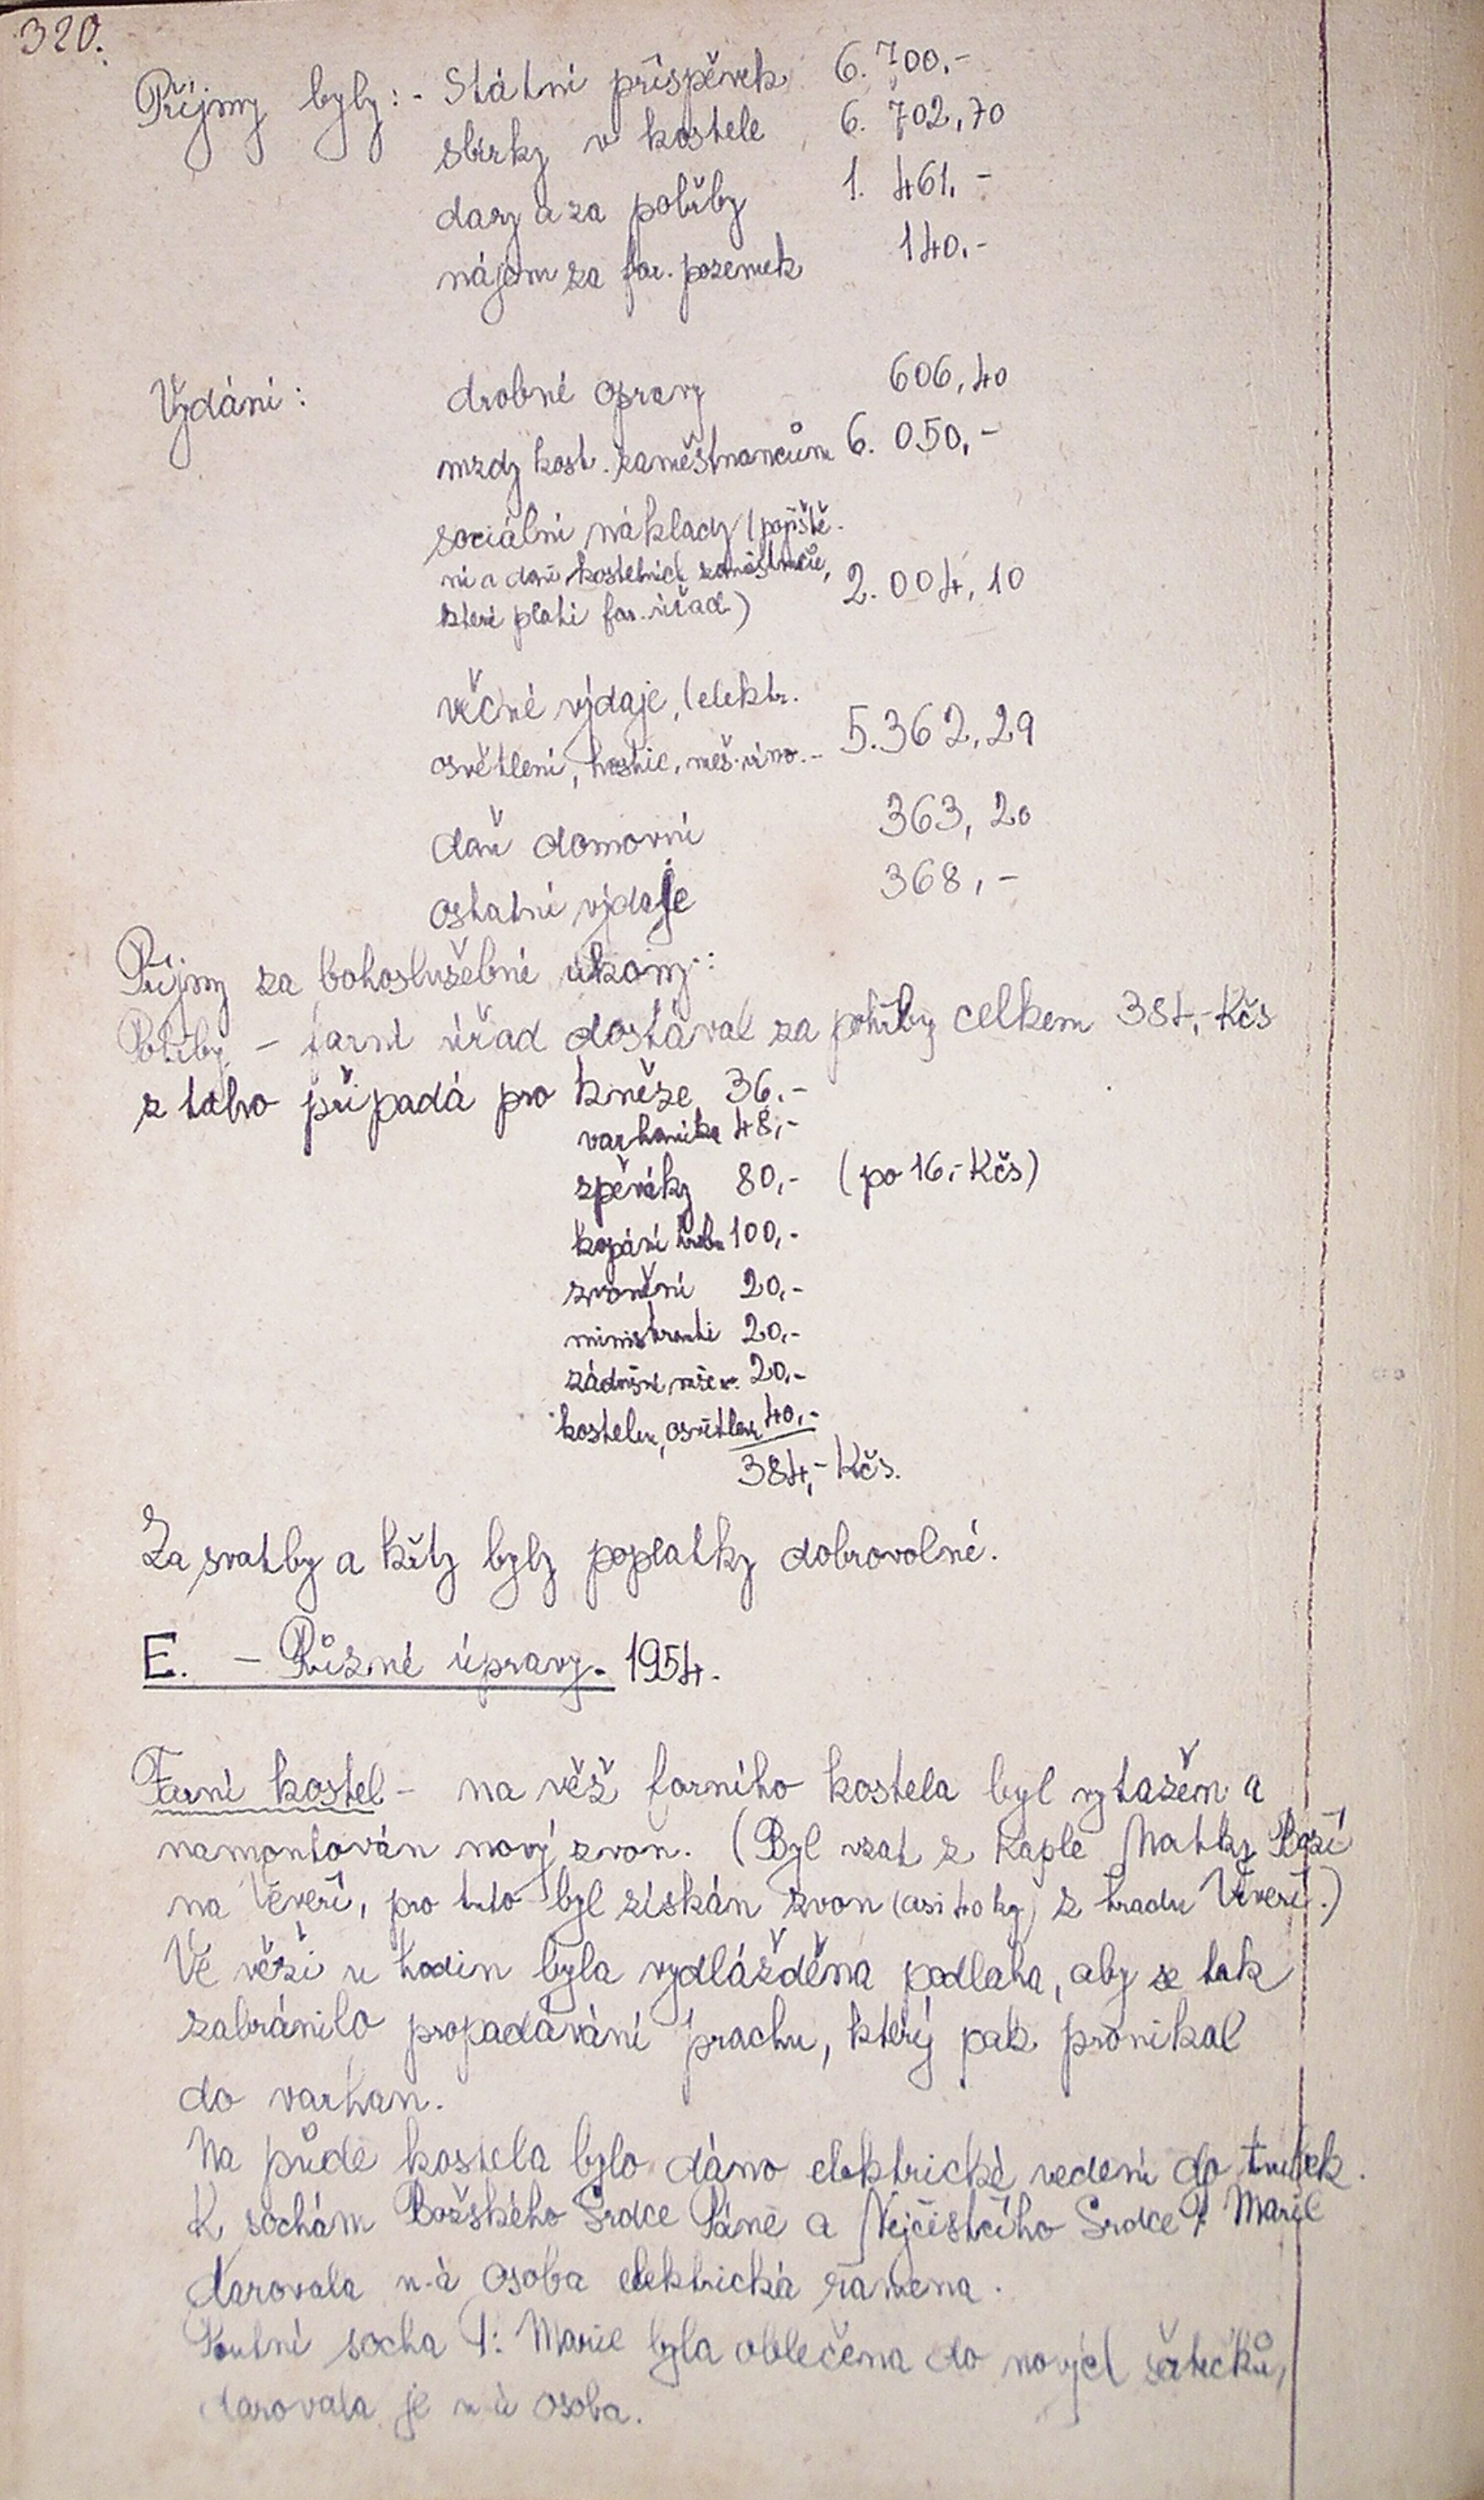 320.
Příjmy byly: - Státní příspěvek 6.700.-
sbírky v kostele 6.702,70
dary a za pohřby 1.461.-
nájem za far. pozemek 140.-
Vydání: drobné opravy 606,40
mzdy kost. zaměstnancům 6.050,-
sociální náklady (pojiště-
ní a daně kostelních zaměstnanců,
které platí far. úřad) 2.004,10
věcné výdaje, (elektr.
osvětlení, hostie, meš. víno.- 5.362,29
daň domovní 363,20
ostatní výdaje 368,-
Příjmy za bohoslužebné úkony:
Pohřby - farní úřad dostával za pohřby celkem 384,- Kčs
z toho připadá pro kněze 36.-
varhaníka 48,-
zpěváky 80,- (po 16,- Kčs)
kopání hrobu 100,-
zvonění 20,-
ministranti 20,-
zádušní 20,-
kostelu, osvětlení 40,-
384,- Kčs.
Za svatby a křty byly poplatky dobrovolné.
E. - Různé úpravy. 1954.
Farní kostel - na věž farního kostela byl vytažěn a
namontován nový zvon. (Byl vzat z kaple Matky Boží
na Veveří, pro tuto byl získán zvon (asi 40 kg) z hradu Veveří.)
Ve věži u hodin byla vydlážděna podlaha, aby se tak
zabránilo propadávání prachu, který pak pronikal
do varhan.
Na půdě kostela bylo dáno elektrické vedení do trubek.
K sochám Božského Srdce Páně a Nejčistčího Srdce P. Marie
darovala n.á osoba elektrická ramena.
Poutní socha P. Marie byla oblečena do nových šatečků,
darovala je n.á osoba.